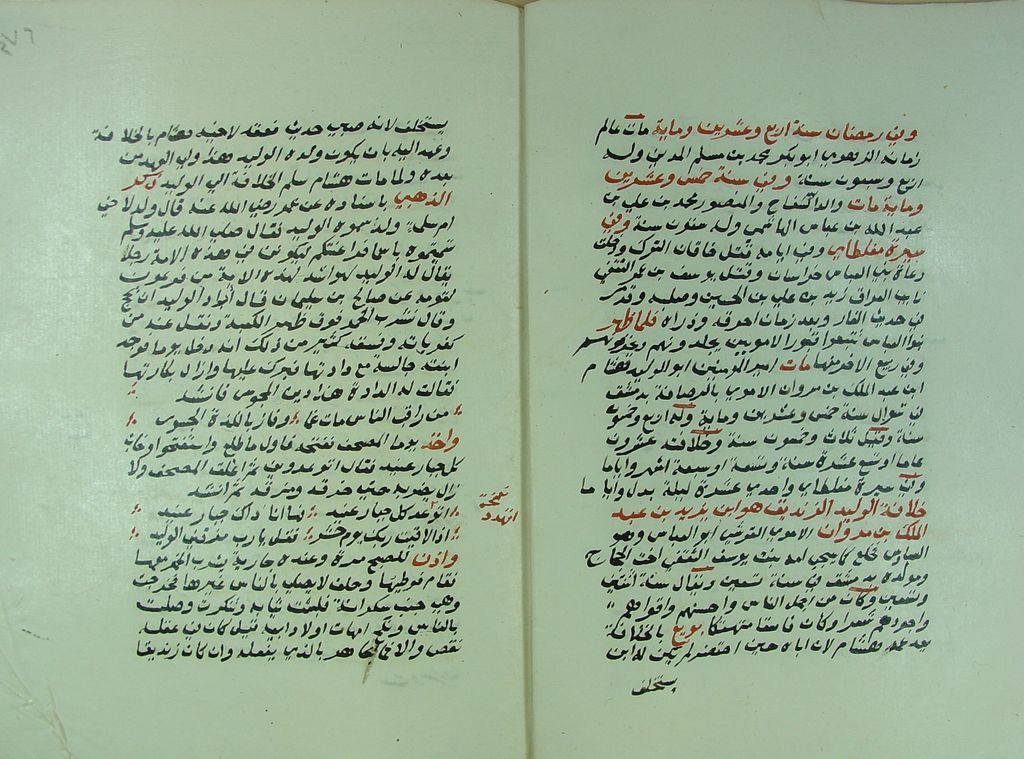 وفي رمضان سنة اربع وعشرين وماية مات عالم
زمانه الزهري ابو بكر محمد بن مسلم المدني وله
اربع وسبعون سنة وفي سنة خمس وعشرين
وماية مات والد السفاح والمنصور محمد بن علي بن
عبد الله بن عباس الهاشمي وله ستون سنة وفي
سيرة مغلطاي وفي ايامه قتل خاقان الترك ودخلت
دعاة بني العباس خراسان وقتل يوسف بن عمر الثقفي
نايب العراق زيد بن علي بن الحسين وصلبه وقد مر
في حديث الفار وبعد زمان احرقه وذراه فلما ظهر
بنو العباس نبشوا قبور الامويين
وفي ربيع الاخر منها مات امير المومنين ابو الوليد هشام
ابن عبد الملك بن مروان الاموي بالرصافة بدمشق
في شوال سنة خمس وعشرين وماية وله اربع وخمسون
سنة وقيل ثلاث وخمسون سنة وخلافته عشرون
عاما او تسع عشرة سنة وتسعة او سبعة اشهر واياما
وفي سيرة مغلطاي واحدي عشرة ليلة بدل واياما
خلافة الوليد الزنديق هو ابن يزيد بن عبد
الملك بن مروان الاموي القرشي ابو العباس وهو
السادس فخلع كما يجي امه بنت يوسف الثقفي اخت الحجاج
ومولده بدمشق في سنة تسعين ويقال سنة اثنتين
وتسعين وكان من اجمل الناس واحسنهم واقواهم
واجودهم شعرا وكان فاسقا متهتكا بويع بالخلافة
بعد عمه هشام لان اباه حين احتضر لم يكن له ان
يستخلف
يستخلفه لانه صبي حدث فعقد لاخيه هشام بالخلافة
وعهد اليه بان يكون ولده الوليد هذا ولي العهد من
بعده ولما مات هشام سلم الخلافة الي الوليد ذكر
الذهبي باسناده عن عمر رضي الله عنه قال ولد لاخي
ام سلمة ولد سموه الوليد فقال صلي الله عليه وسلم
سميتموه باسما فراعنتكم ليكونن في هذه الامة رجل
يقال له الوليد لهو اشد لهذه الامة من فرعون
لقومه عن صالح بن سليمان قال اراد الوليد ان يحج
وقال نشرب الخمر فوق ظهر الكعبة ونقل عنه من
كفرياته وفسقه كثير من ذلك انه دخل يوما فوجد
ابنته جالسة مع دادتها فبرك عليها وازال بكارتها
فقالت له الدادة هذا دين المجوس فانشد
من راقب الناس مات غما وفاز باللذة الجسور
واخذ يوما المصحف ففتحه فاول ما طلع واستفتحوا وخاب
كل جبار عنيد فقال اتوعدوني ثم اغلق المصحف ولا
زال يضربه حتي خرقه ومزقه ثم انشد
اتوعد كل جبار عنيد فها انا ذاك جبار عنيد
اذا لاقيت ربك يوم حشر فقل يا رب مزقني الوليد
نسخة
اتهدد
واذن للصبح مرة وعنده جارية يشرب الخمر معها
فقام فوطيها وحلف لا يصلي بالناس غيرها فخرجت
وهي جنب سكرانة فلبست ثيابه وتنكرت وصلت
بالناس ونكح امهات اولاد ابيه قيل كان في عقله
نقص والا فما جاهر بالذي يفعله وان كان زنديقا